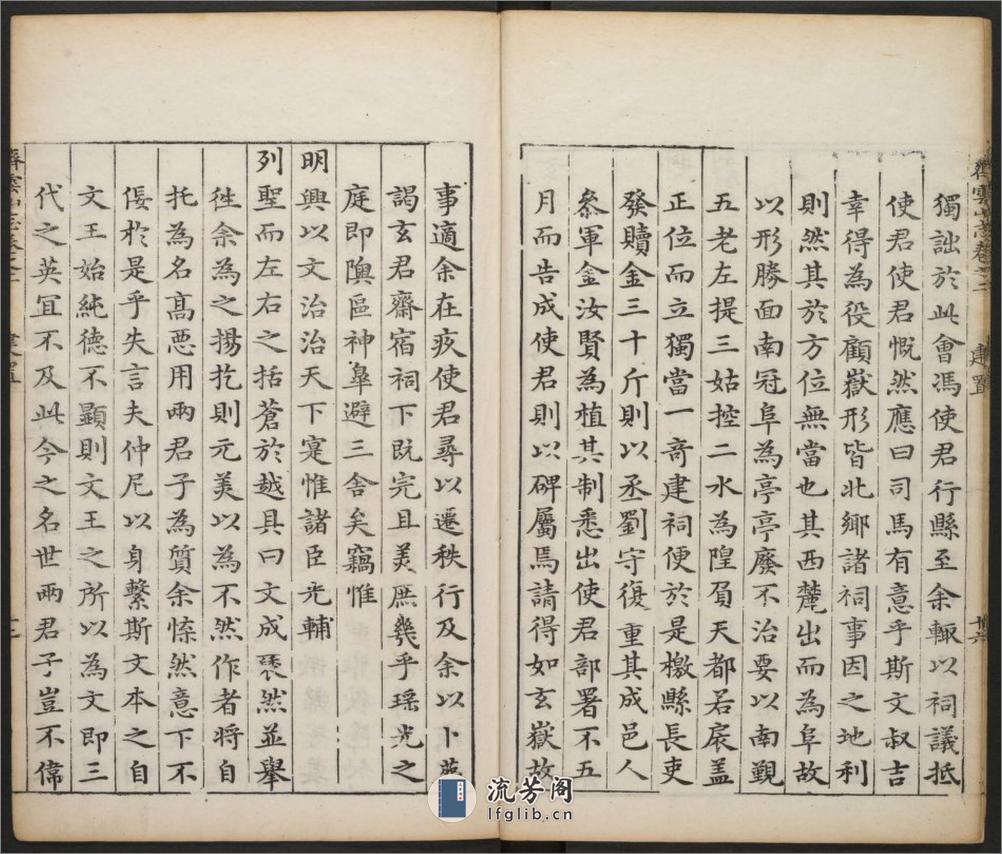 齊雲山志卷之二
建置
獨詘於此會馮使君行縣至余輒以祠議抵
使君使君慨然應曰司馬有意乎斯文叔吉
幸得為役顧嶽形皆北鄉諸祠事因之地利
則然其於方位無當也其西麓出而為阜故
以形勝面南冠阜為亭亭廢不治要以南觀
五老左提三姑控二水為隍負天都若扆盖
正位而立獨當一竒建祠便於是檄縣長吏
發贖金三十斤則以丞劉守復重其成邑人
叅軍金汝賢為植其制悉出使君部署不五
月而告成使君則以碑屬焉請得如玄嶽故
事適余在疚使君尋以遷秩行及余以卜㷼
謁玄君齋宿祠下既完且美庶幾乎瑶光之
庭即隩區神臯避三舍矣竊惟
明興以文治治天下寔惟諸臣光輔
列聖而左右之括蒼於越具曰文成褎然並舉
徃余為之揚扢則元美以為不然作者將自
托為名髙惡用兩君子為質余㦗然意下不
佞於是乎失言夫仲尼以身繫斯文本之自
文王始純德不顯則文王之所以為文即三
代之英冝不及此今之名世兩君子豈不偉
流芳阁
lfglib.cn